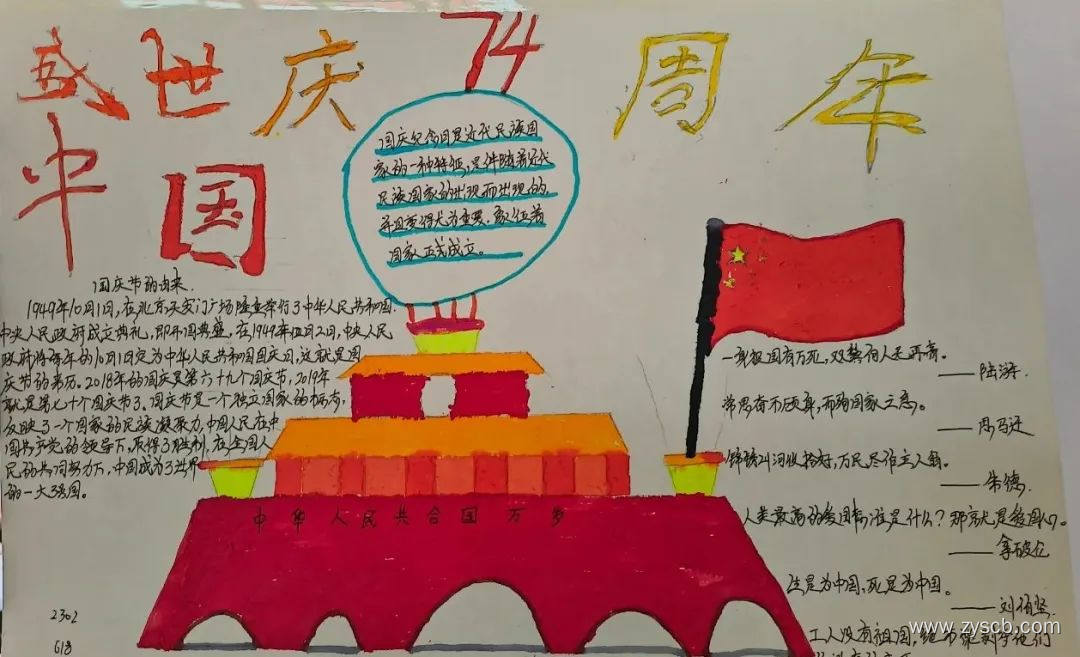 盛世庆74周年
中国
国庆纪念日是近代民族国
家的一种特征,是伴随着近代
民族国家的出现而出现的,
并且变得尤为重要、象征着
国家正式成立。
国庆节的由来.
1949年10月1日,在北京天安门广场隆重举行了中华人民共和国
中央人民政府成立典礼,即开国典盛。在1949年四月2日,中央人民
政府将每年的10月1日定为中华人民共和国国庆日,这就是国
庆节的来历。2018年的国庆是第六十九个国庆节,2019年
就是第七十个国庆节了。国庆节是一个独立国家的标志,
反映了一个国家的民族凝聚力,中国人民在中
国共产党的领导下,取得了胜利,在全国人
民的共同努力下,中国成为了世界
的一大强国。
一身报国有万死,双鬓向人无再青。
——陆游.
常思奋不顾身,而殉国家之急。
——司马迁
锦绣山河收拾好,万民尽作主人翁。
——朱德.
人类最高的道德是什么?那就是爱国心。
——拿破仑
生是为中国,死是为中国。
——刘伯坚.
工人没有祖国,绝不能剥夺他们
中华人民共合国万岁
2302
G18
www.zyscb.com